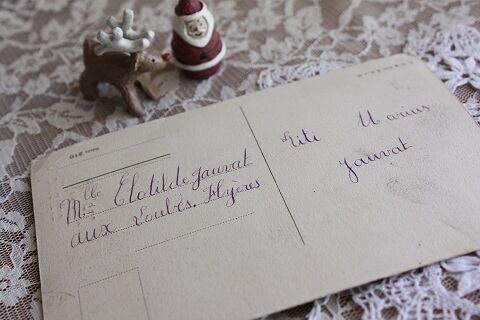 Mlle Clotilde Jauvat
aux Loubes. Hyères
Titi Marius
Jauvat